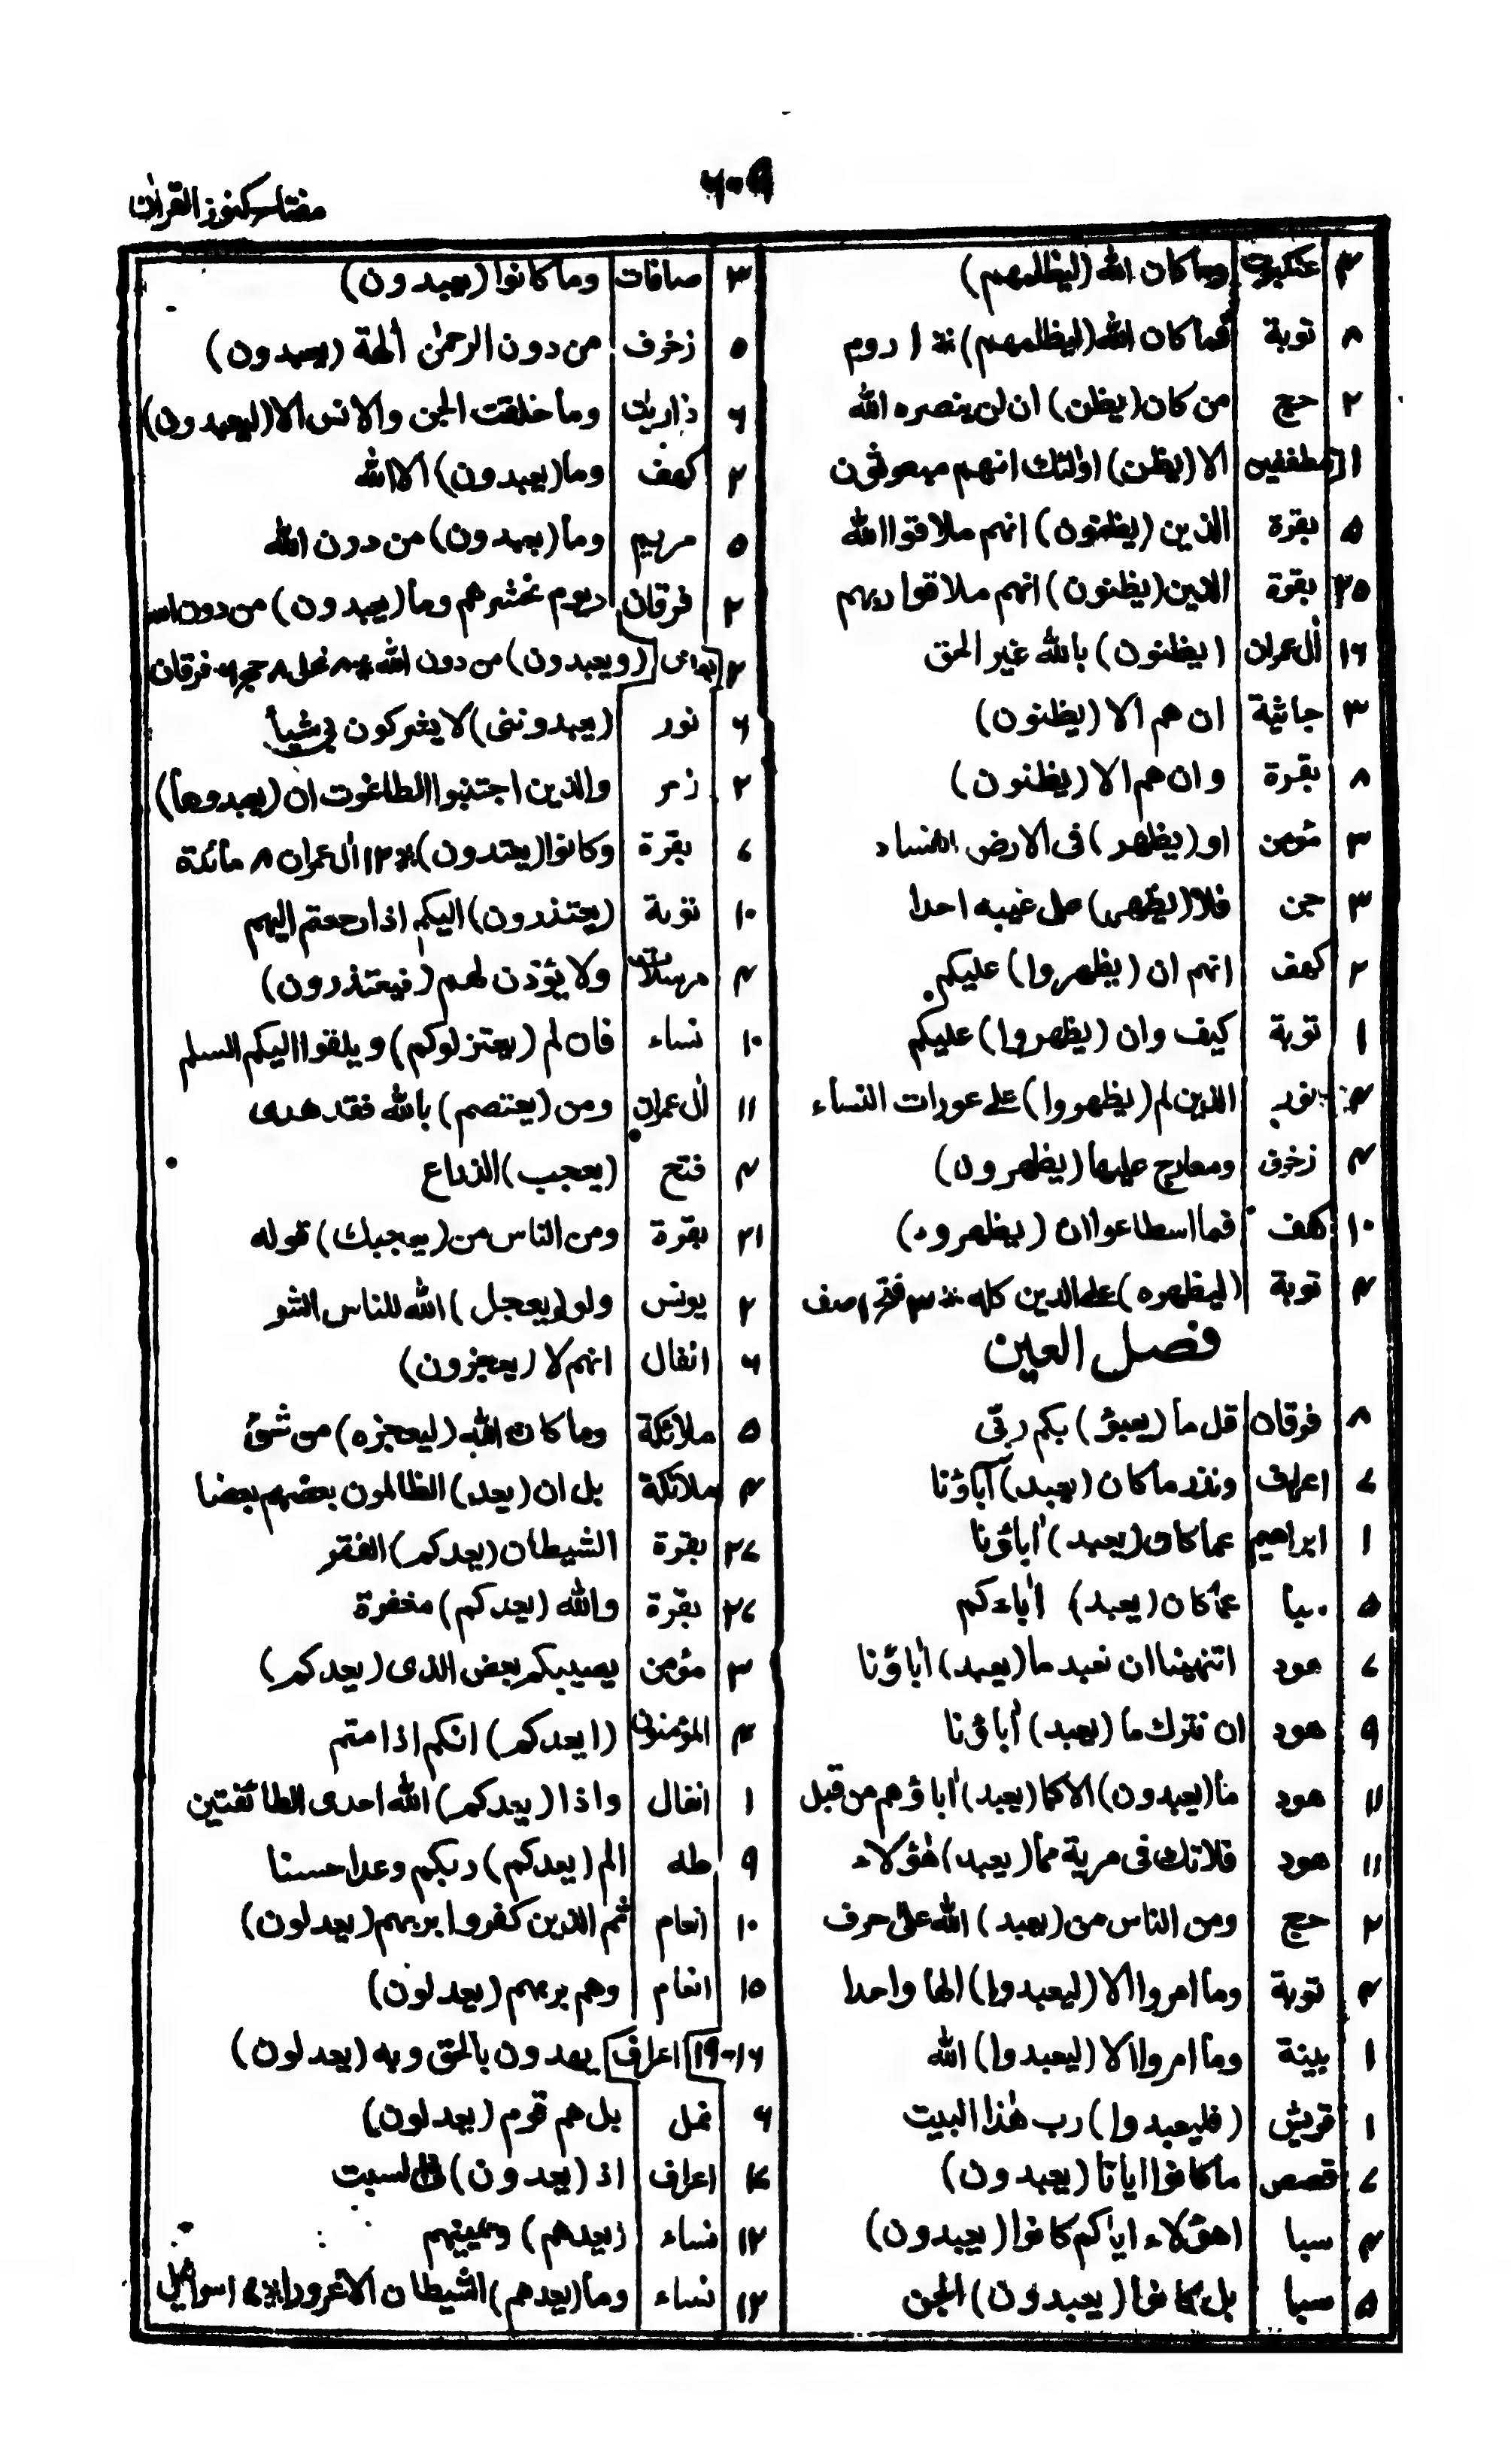 ۶۰۹
مفتاح کنوز القرآن
۴ عنکبوت وما کان الله (لیظلمهم)
۸ توبة فما کان الله (لیظلمهم) ؛ ۱ روم
۲ حج من کان (یظن) ان لن ینصره الله
۱ مطففین الا (یظن) اولئك انهم مبعوثون
۵ بقرة الذین (یظنون) انهم ملاقوا الله
۲۵ بقرة الذین (یظنون) انهم ملاقوا ربهم
۱۶ اٰل عمران (یظنون) بالله غیر الحق
۳ جاثیة ان هم الا (یظنون)
۸ بقرة وان هم الا (یظنون)
۳ مؤمن او (یظهر) فی الارض الفساد
۳ جن فلا (یظهر) علی غیبه احدا
۲ کهف انهم ان (یظهروا) علیکم
۱ توبة کیف وان (یظهروا) علیکم
۴ نور الذین لم (یظهروا) علے عورات النساء
۴ زخرف ومعارج علیها (یظهرون)
۱۰ کهف فما اسطاعوا ان (یظهروه)
۴ توبة (لیظهره) علے الدین کله ؛ ۳ فتح ۱ صف
فصل العین
۸ فرقان قل ما (یعبؤ) بکم ربّی
۷ اعراف ونذر ما کان (یعبد) آباؤنا
۱ ابراهیم عما کان (یعبد) اٰباؤنا
۵ سبا عمّا کان (یعبد) اٰباءکم
۷ هود اتنهینا ان نعبد ما (یعبد) اٰباؤنا
۹ هود ان نترك ما (یعبد) اٰباؤنا
۱۱ هود ما (یعبدون) الا کما (یعبد) اٰباؤهم من قبل
۱۱ هود فلا تك فی مریة مما (یعبد) هٰؤلاء
۲ حج ومن الناس من (یعبد) الله علی حرف
۴ توبة وما امروا الا (لیعبدوا) الها واحدا
۱ بینة وما امروا الا (لیعبدوا) الله
۱ قریش (فلیعبدوا) رب هٰذا البیت
۷ قصص ما کانوا ایانا (یعبدون)
۴ سبا اهؤلاء ایاکم کانوا (یعبدون)
۵ سبا بل کانوا (یعبدون) الجن
۳ صافات وما کانوا (یعبدون)
۵ زخرف من دون الرحمٰن اٰلهة (یعبدون)
۶ ذاریات وما خلقت الجن والانس الا (لیعبدون)
۲ کهف وما (یعبدون) الا الله
۵ مریم وما (یعبدون) من دون الله
۲ فرقان ویوم نحشرهم وما (یعبدون) من دون الله
۲ یونس (ویعبدون) من دون الله ؛ نحل ۸ حج ۹ فرقان
۶ نور (یعبدوننی) لا یشرکون بی شیأ
۲ زمر والذین اجتنبوا الطاغوت ان (یعبدوها)
۷ بقرة وکانوا (یعتدون) ؛ ۱۲ اٰل عمران ۸ مائدة
۱۰ توبة (یعتذرون) الیکم اذا رجعتم الیهم
۴ مرسلات ولا یؤذن لهم (فیعتذرون)
۱۰ نساء فان لم (یعتزلوکم) ویلقوا الیکم السلم
۱۱ اٰل عمران ومن (یعتصم) بالله فقد هدی
۴ فتح (یعجب) الزراع
۲۱ بقرة ومن الناس من (یعجبك) قوله
۲ یونس ولو (یعجل) الله للناس الشر
۶ انفال انهم لا (یعجزون)
۵ ملائکة وما کان الله (لیعجزه) من شئ
۴ ملائکة بل ان (یعد) الظالمون بعضهم بعضا
۲۷ بقرة الشیطان (یعدکم) الفقر
۲۷ بقرة والله (یعدکم) مغفرة
۳ مؤمن یصیبکم بعض الذی (یعدکم)
۳ المؤمنون (ایعدکم) انکم اذا متم
۱ انفال واذا (یعدکم) الله احدی الطائفتین
۹ طه الم (یعدکم) ربکم وعدا حسنا
۱۰ انعام ثم الذین کفروا بربهم (یعدلون)
۱۵ انعام وهم بربهم (یعدلون)
۱۶-۱۹ اعراف یهدون بالحق وبه (یعدلون)
۶ نمل بل هم قوم (یعدلون)
اعراف اذ (یعدون) فی السبت
۱۲ نساء (یعدهم) ویمنیهم
۱۲ نساء وما (یعدهم) الشیطان الا غرورا ؛ ۷ اسرائیل